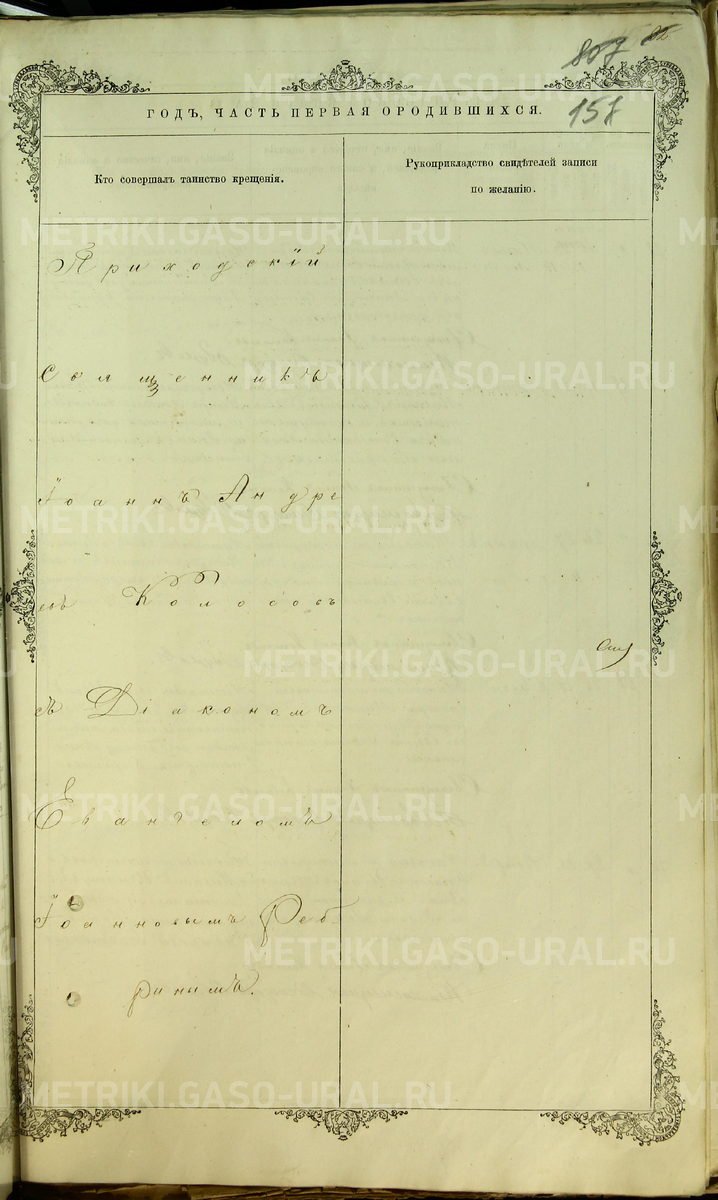 807
157
ГОДЪ, ЧАСТЬ ПЕРВАЯ ОРОДИВШИХСЯ.
Кто совершалъ таинство крещенія.
Рукоприкладство свидѣтелей записи
по желанію.
Приходскій
Священникъ
Іоаннъ Андре
евъ Колосовъ
съ Діакономъ
Евангеломъ
Іоанновымъ Реб
ринымъ.
METRIKI.GASO-URAL.RU